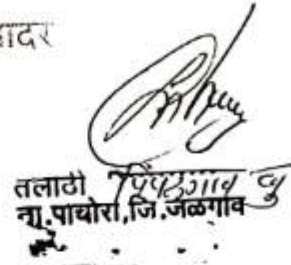 ादर
तलाठी पिंपळगाव बु
ता.पाचोरा,जि.जळगाव